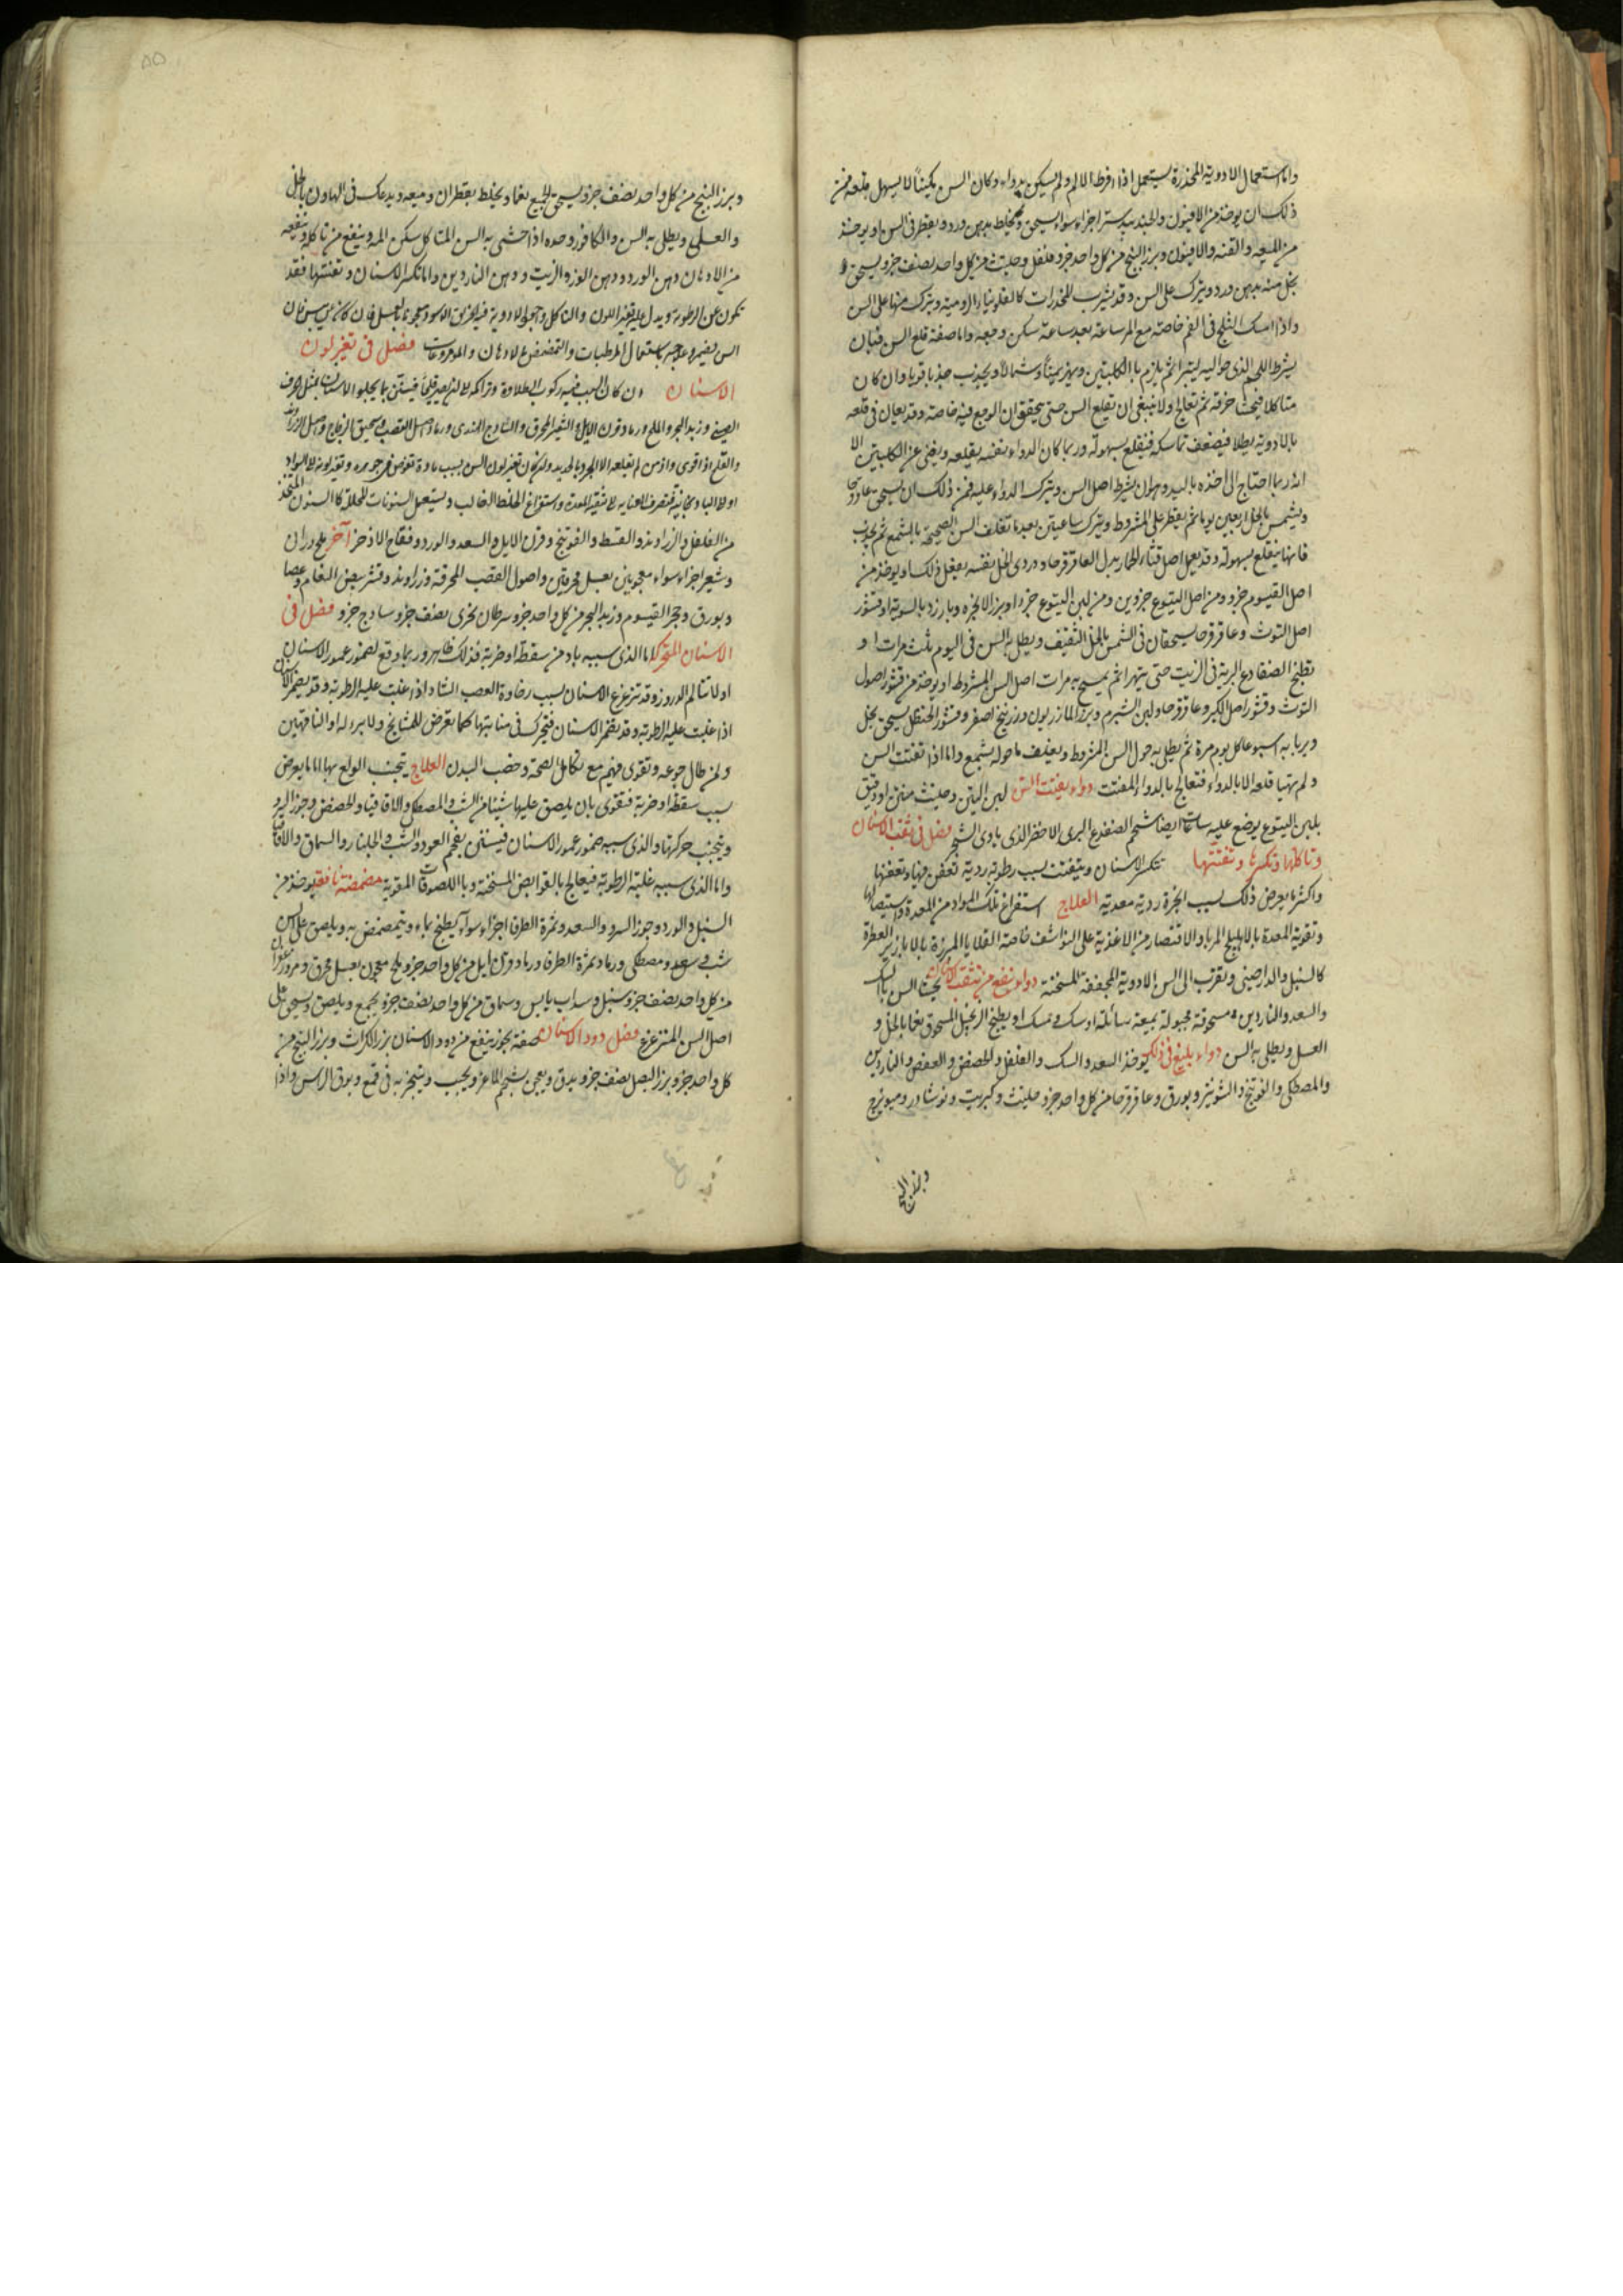 واما استعمال الادوية المخدرة يستعمل اذا افرط الالم ولم يسكن بدواء وكان السن مكيناً لا يسهل قلعه فمن
ذلك ان يوخذ من الافيون والجندبيدستر اجزاء سواء يسحق ويخلط بدهن ورد ويقطر فى السن او يوخذ
من الميعه والقنه والافيون وبزر البنج من كل واحد جزو فلفل وحلتيت من كل واحد نصف جزو يسحق و
يحل منه بدهن ورد ويترك على السن وقد يشرب المخدرات كالفلونيا الرومية ويترك منها على السن
واذا امسك الثلج فى الفم خاصة مع المر ساعة بعد ساعة سكن وجعه واما صفة قلع السن فبان
يشرط اللحم الذى حواليه ليتبرا ثم يلزم باالكلبتين ويهز يميناً وشمالاً ويجذب جذبا قويا وان كان
متاكلا فيحشا خرقة ثم تعالج ولا ينبغى ان تقلع السن حتى يتحقق ان الوجع فيه خاصة وقد يعان فى قلعه
بالادوية يطلا فيضعف تماسكه فينقلع بسهولة وربما كان الدواء بنفسه يقلعه ويغنى عن الكلبتين الا
انه ربما احتاج الى اخذه باليد وهو ان يشرط اصل السن ويترك الدواء عليه فمن ذلك ان يسحق عاقرقرحا
ويشمس بالخل اربعين يوما ثم يقطر على المشروط ويترك ساعتين بعد ما تغلف السن الصحيحة بالشمع ثم يجذب
فانها ينقلع بسهولة وقد يجعل اصل قثاء الحمار بدل العاقرقرحا ودردى الخل بنفسه يفعل ذلك او يوخذ من
اصل القيسوم جزو ومن اصل اليتوع جزوين ومن لبن اليتوع جزء او بزر الانجزه وبارزد بالسوية او قشور
اصل التوث وعاقرقرحا يسحقان فى الشمس بالخل الثقيف ويطلى به السن فى اليوم ثلث مرات او
تطبخ الضفادع البرية فى الزيت حتى يتهرا ثم يمسح به مرات اصل السن المشروط او يوخذ من قشور اصول
التوث وقشور اصل الكبر وعاقرقرحا ولبن الشبرم وبزر المازريون وزرنيخ اصفر وقشور الحنظل يسحق بخل
ويربا به اسبوعا كل يوم مرة ثم يطلى به حول السن المشروط ويغلف ما حوله بشمع واما اذا تفتت السن
ولم يتهيا قلعه الا بالدواء فتعالج بالدواء المفتت دواء يفتت السن لبن التين وحلتيت منتن او دقيق
بلبن اليتوع يوضع عليه ساعات ايضا شحم الضفدع البرى الاخضر الذى ياوى الشجر فصل فى ثقب الاسنان
وتاكلها وتكسرها وتفتتها تتكسر الاسنان ويتفتت بسبب رطوبة ردية تعفن فيها وتعفنها
واكثر ما يعرض ذلك بسبب ابخرة ردية معدية العلاج استفراغ تلك المواد من المعدة واستيصالها
وتقوية المعدة بالاهليلج المربا والاقتصار من الاغذية على النواشف خاصة القلايا المبزرة بالابازير العطرة
كالسنبل والدارصينى ويقرب الى السن الادوية المجففة المسخنة دواء ينفع من تثقب الاسنان يحشا السن بالسك
والسعد والناردين مسحوقة مجبولة بميعة سائلة او سك ومسك او يطبخ الزنجبيل المسحوق نعما بالخل و
العسل ويطلى به السن دواء بليغ فى ذلك يوخذ السعد والسك والفلفل والحضض والعفص والناردين
والمصطكى والفوتنج والشونيز وبورق وعاقرقرحا من كل واحد جزو حلتيت وكبريت ونوشادر وميويزج
وبزر البنج
٥٥
وبزر البنج من كل واحد نصف جزو يسحق الجميع نعما ويخلط بقطران وميعه ويدعك فى الهاون بالخل
والعسل ويطلى به السن والكافور وحده اذا حشى به السن المتاكل سكن المه وينفع من تاكله وينفعه
من الادهان دهن الورد ودهن اللوز والزيت ودهن الناردين واما تكسر الاسنان وتفتتها فقد
تكون عن الرطوبة ويدل عليه تغير اللون والتاكل
السن فيضمر وعلاجه باستعمال المرطبات والتمضمض بالادهان والمروخات فصل فى تغير لون
الاسنان ان كان السبب فيه ركوب الطلاوة وتراكمه لا لتحجره قليلاً فيستن بما يجلو الاسنان بمثل الخزف
الصينى وزبد البحر والملح ورماد قرن الايل والشعير المحرق والساذج الهندى ورماد اصل القصب وسحيق الزجاج واصل الزراوند
والقلى اذا قوى وازمن لم تقلعه الا المجرد بالحديد وان كان تغير لون السن بسبب مادة تغوص فى جوهره
من الفلفل والزراوند والقسط والفوتنج وقرن الايل والسعد والورد وفقاح الاذخر آخر ملح درانى
وشعير اجزاء سواء معجونين بعسل محرقين واصول القصب المحرقة وزراوند وقشر بيض النعام
وبورق وحجر القيسوم وزبد البحر من كل واحد جزو سرطان بحرى نصف جزو ساذج جزو فصل فى
الاسنان المتحركة اما الذى سببه باد من سقطة او ضربة فذلك ظاهر وربما وقع لضمور عمور الاسنان
اذا غلبت عليه الرطوبة وقد يضمر الاسنان فيتحرك فى منابتها كما يعرض للمشايخ ولا برء له او الناقهين
ولمن طال جوعه وتقوى فيهم مع تكامل الصحة وخصب البدن العلاج يتجنب الولع بها اما ما يعرض
بسبب سقطة او ضربة فتقوى بان يلصق عليها شيئا من الشب والمصطكى والاقاقيا والحضض وجوز السرو
ويتجنب حركتها والذى سببه ضمور عمور الاسنان فيستن بفحم العود والشب والجلنار والسماق والاقاقيا
واما الذى سببه غلبة الرطوبة فيعالج بالقوابض المسخنة وباللصوقات المقوية مضمضة نافعة يوخذ من
السنبل والورد وجوز السرو والسعد وثمرة الطرفا اجزاء سواء يطبخ بماء ويتمضمض به ويلصق على السن
شب وسعد ومصطكى ورماد ثمرة الطرفا ورماد قرن ايل من كل واحد جزو ملح معجون بعسل محرق
من كل واحد نصف جزو سنبل وسداب يابس وسماق من كل واحد نصف جزو يجمع ويلصق ويسحق على
اصل السن المتزعزع فصل دود الاسنان صفة بخور ينفع من دود الاسنان بزر الكراث وبزر البنج من
كل واحد جزو بزر البصل نصف جزو يدق ويعجن بشحم الماعز ويحبب ويتبخر به فى قمع وبوق الراس واذا